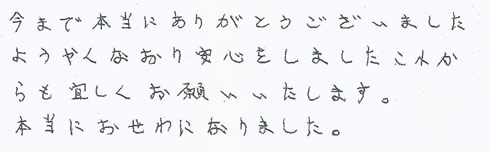 今まで本当にありがとうございました
ようやくなおり安心をしましたこれか
らも宜しくお願いいたします。
本当におせわになりました。